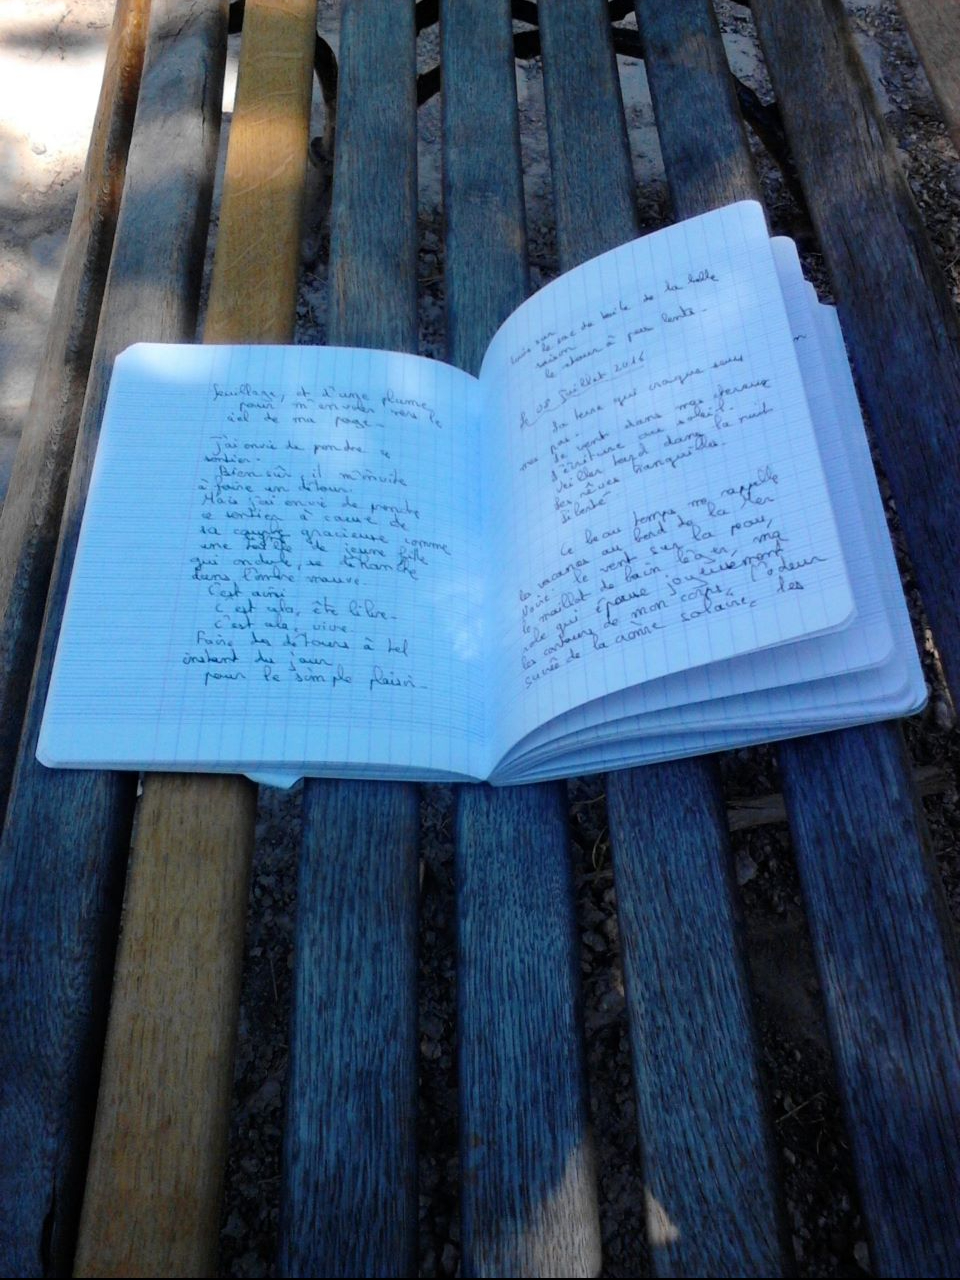 feuillage, et d'une plume,
pour m'envoler vers le
ciel de ma page.
J'ai envie de prendre ce
sentier.
Bien sûr, il m'invite
à faire un détour.
Mais j'ai envie de prendre
ce sentier à cause de
sa courbe gracieuse comme
une taille de jeune fille
qui ondule, se déhanche
dans l'ombre mauve.
C'est ainsi
C'est cela, être libre.
C'est cela, vivre.
Faire des détours à tel
instant du jour
pour le simple plaisir.
sur
le sac de toile de la belle
saison
le retour à pas lents.
le 08 Juillet 2016
La terre qui craque sous
mes pas.
Le vent dans mes cheveux
L'écriture au soleil.
Veiller tard dans la nuit
Les rêves tranquilles.
Liberté
Ce beau temps me rappelle
les vacances au bord de la mer
le vent sur la peau,
le maillot de bain léger, ma
robe qui épouse joyeusement
les contours de mon corps, l'odeur
sucrée de la crème solaire, les